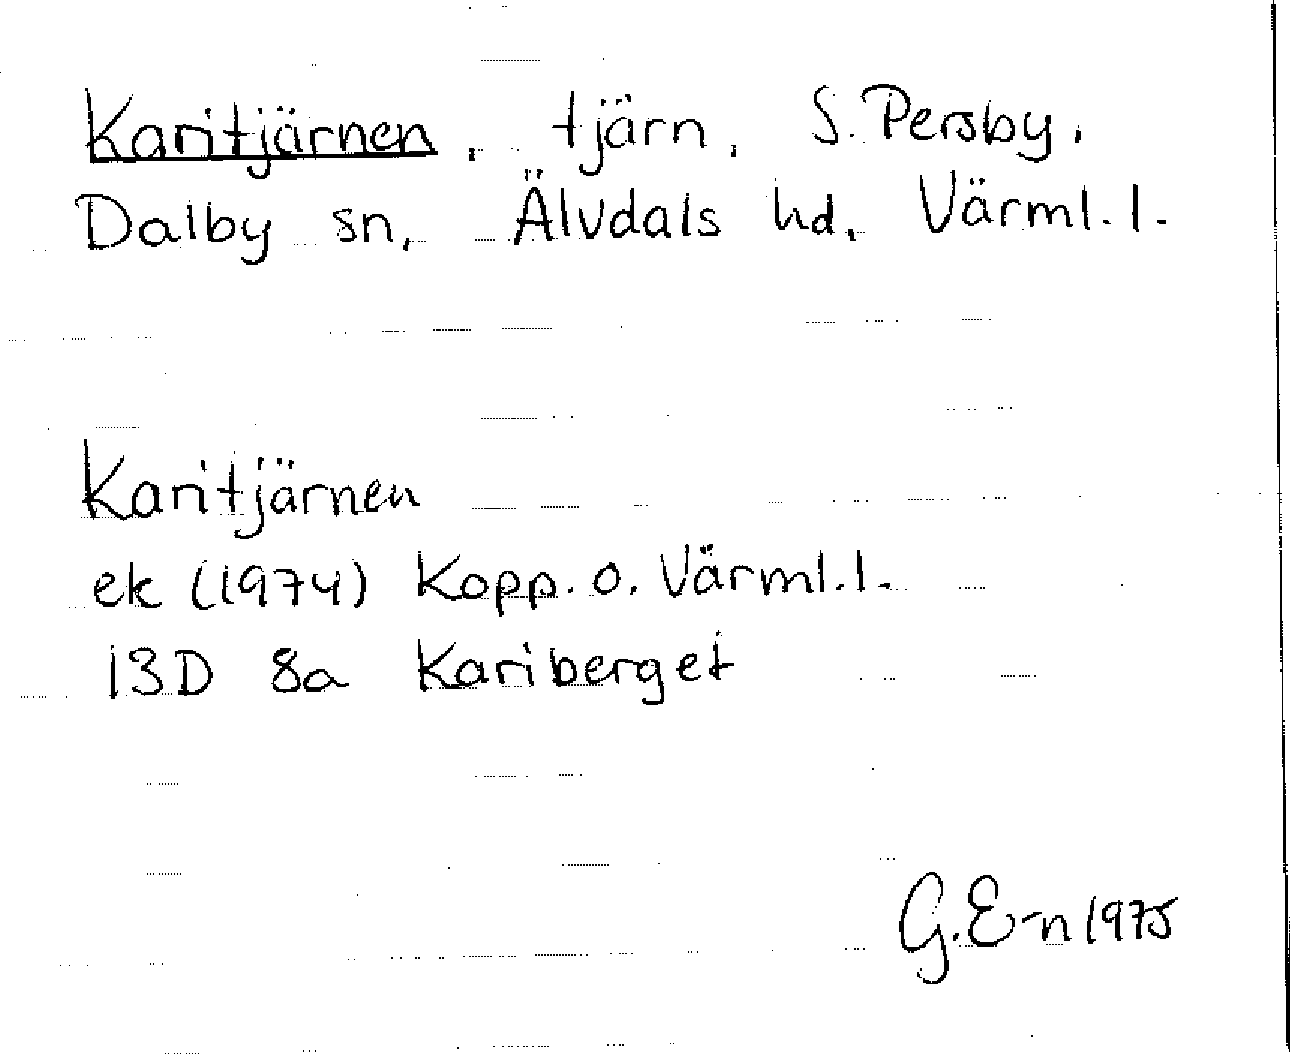 Karitjärnen, tjärn, S. Persby,
Dalby sn, Älvdals hd, Värml. l.
Karitjärnen
ek (1974) Kopp. o. Värml. l.
13D 8a Kariberget
G. E-n 1975